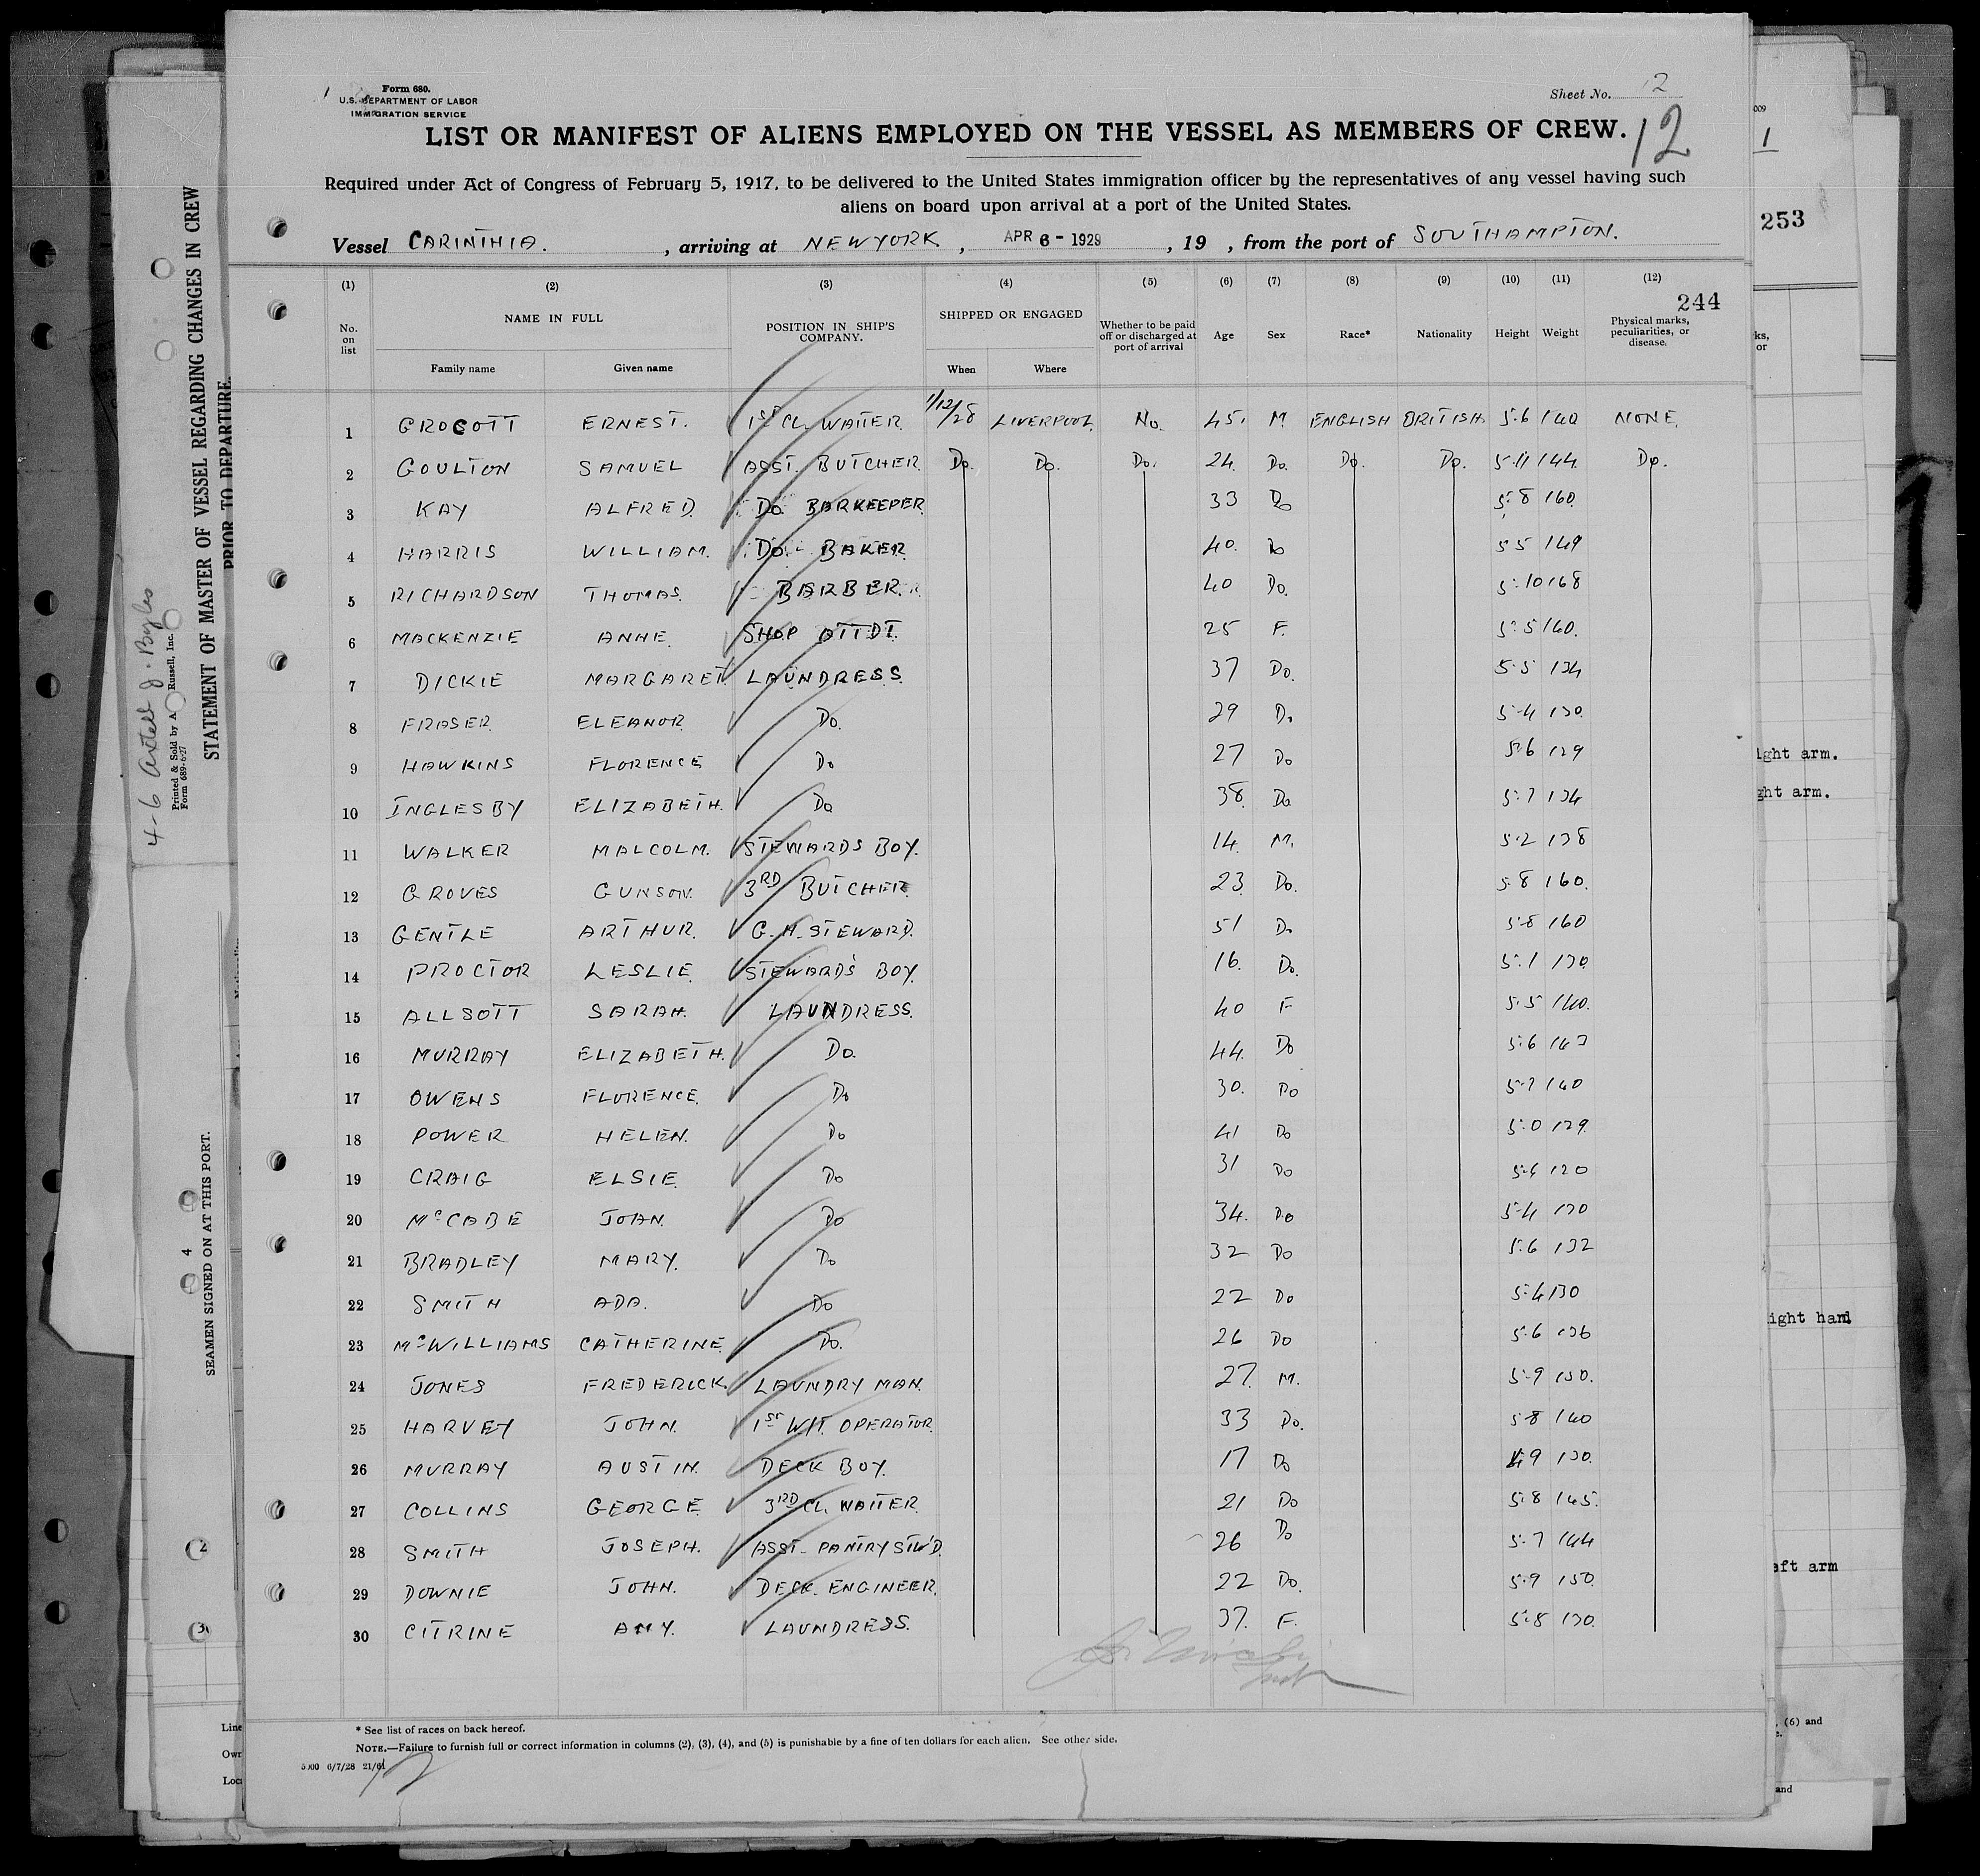 Form 680.
U.S. DEPARTMENT OF LABOR
IMMIGRATION SERVICE
Sheet No. 12
LIST OR MANIFEST OF ALIENS EMPLOYED ON THE VESSEL AS MEMBERS OF CREW.
12
Required under Act of Congress of February 5, 1917, to be delivered to the United States immigration officer by the representatives of any vessel having such
aliens on board upon arrival at a port of the United States.
Vessel CARINTHIA. , arriving at NEW YORK , APR 6 - 1929 , 19 , from the port of SOUTHAMPTON.
(1) (2) (3) (4) (5) (6) (7) (8) (9) (10) (11) (12)
244
No. on list NAME IN FULL Family name Given name POSITION IN SHIP'S COMPANY. SHIPPED OR ENGAGED When Where Whether to be paid off or discharged at port of arrival Age Sex Race* Nationality Height Weight Physical marks, peculiarities, or disease.
1 GROCOTT ERNEST. 1ST CL. WAITER 1/12/28 LIVERPOOL. No. 45. M ENGLISH BRITISH 5.6 140 NONE.
2 GOULTON SAMUEL ASST. BUTCHER Do. Do. Do. 24. Do. Do. Do. 5.11 144. Do.
3 KAY ALFRED. Do BARKEEPER. 33 Do 5.8 160.
4 HARRIS WILLIAM. Do BAKER 40. Do 5 5 149
5 RICHARDSON THOMAS. BARBER. 40 Do. 5.10 168
6 MACKENZIE ANNE. SHOP ATTDT. 25 F. 5.5 160.
7 DICKIE MARGARET. LAUNDRESS. 37 Do. 5.5 134
8 FRASER. ELEANOR. Do. 29 Do 5.4 130.
9 HAWKINS FLORENCE Do 27 Do 5.6 129
10 INGLESBY ELIZABETH. Do 38. Do 5.7 134
11 WALKER MALCOLM. STEWARDS BOY. 14. M. 5.2 138
12 GROVES GUNSON. 3RD BUTCHER 23. Do. 5.8 160.
13 GENTLE ARTHUR. G.H. STEWARD. 51 Do 5.8 160
14 PROCTOR LESLIE. STEWARD'S BOY. 16. Do. 5.1 130.
15 ALLSOTT SARAH. LAUNDRESS. 40 F 5.5 140.
16 MURRAY ELIZABETH. Do. 44. Do 5.6
17 OWENS FLORENCE. Do 30. Do 5.7 140
18 POWER HELEN. Do 41 Do 5.0 129.
19 CRAIG ELSIE. Do 31 Do 5.6 120
20 McCABE JOAN. Do 34. Do 5.4 130
21 BRADLEY MARY. Do 32 Do 5.6 132
22 SMITH ADA. Do 22 Do 5.4 130
23 McWILLIAMS CATHERINE. Do. 26 Do 5.6 136
24 JONES FREDERICK. LAUNDRY MAN. 27. M. 5.9 150.
25 HARVEY JOHN. 1ST W/T. OPERATOR. 33 Do. 5.8 140
26 MURRAY AUSTIN. DECK BOY. 17 Do 5.9 130.
27 COLLINS GEORGE. 3RD CL. WAITER. 21 Do 5.8 145.
28 SMITH JOSEPH. ASST. PANTRY STW'D. 26 Do 5.7 144
29 DOWNIE JOHN. DECK ENGINEER. 22 Do. 5.9 150.
30 CITRINE AMY. LAUNDRESS. 37. F. 5.8 130.
* See list of races on back hereof.
NOTE.—Failure to furnish full or correct information in columns (2), (3), (4), and (5) is punishable by a fine of ten dollars for each alien. See other side.
5000 6/7/28 21/61
12
STATEMENT OF MASTER OF VESSEL REGARDING CHANGES IN CREW
PRIOR TO DEPARTURE.
Printed & Sold by A Russell, Inc.
Form 689-6-27
4-6
SEAMEN SIGNED ON AT THIS PORT.
4
2
3
Line
Own
Loc
009
1
253
ks,
or
ight arm.
ght arm.
ight hand
eft arm
, (6) and
and